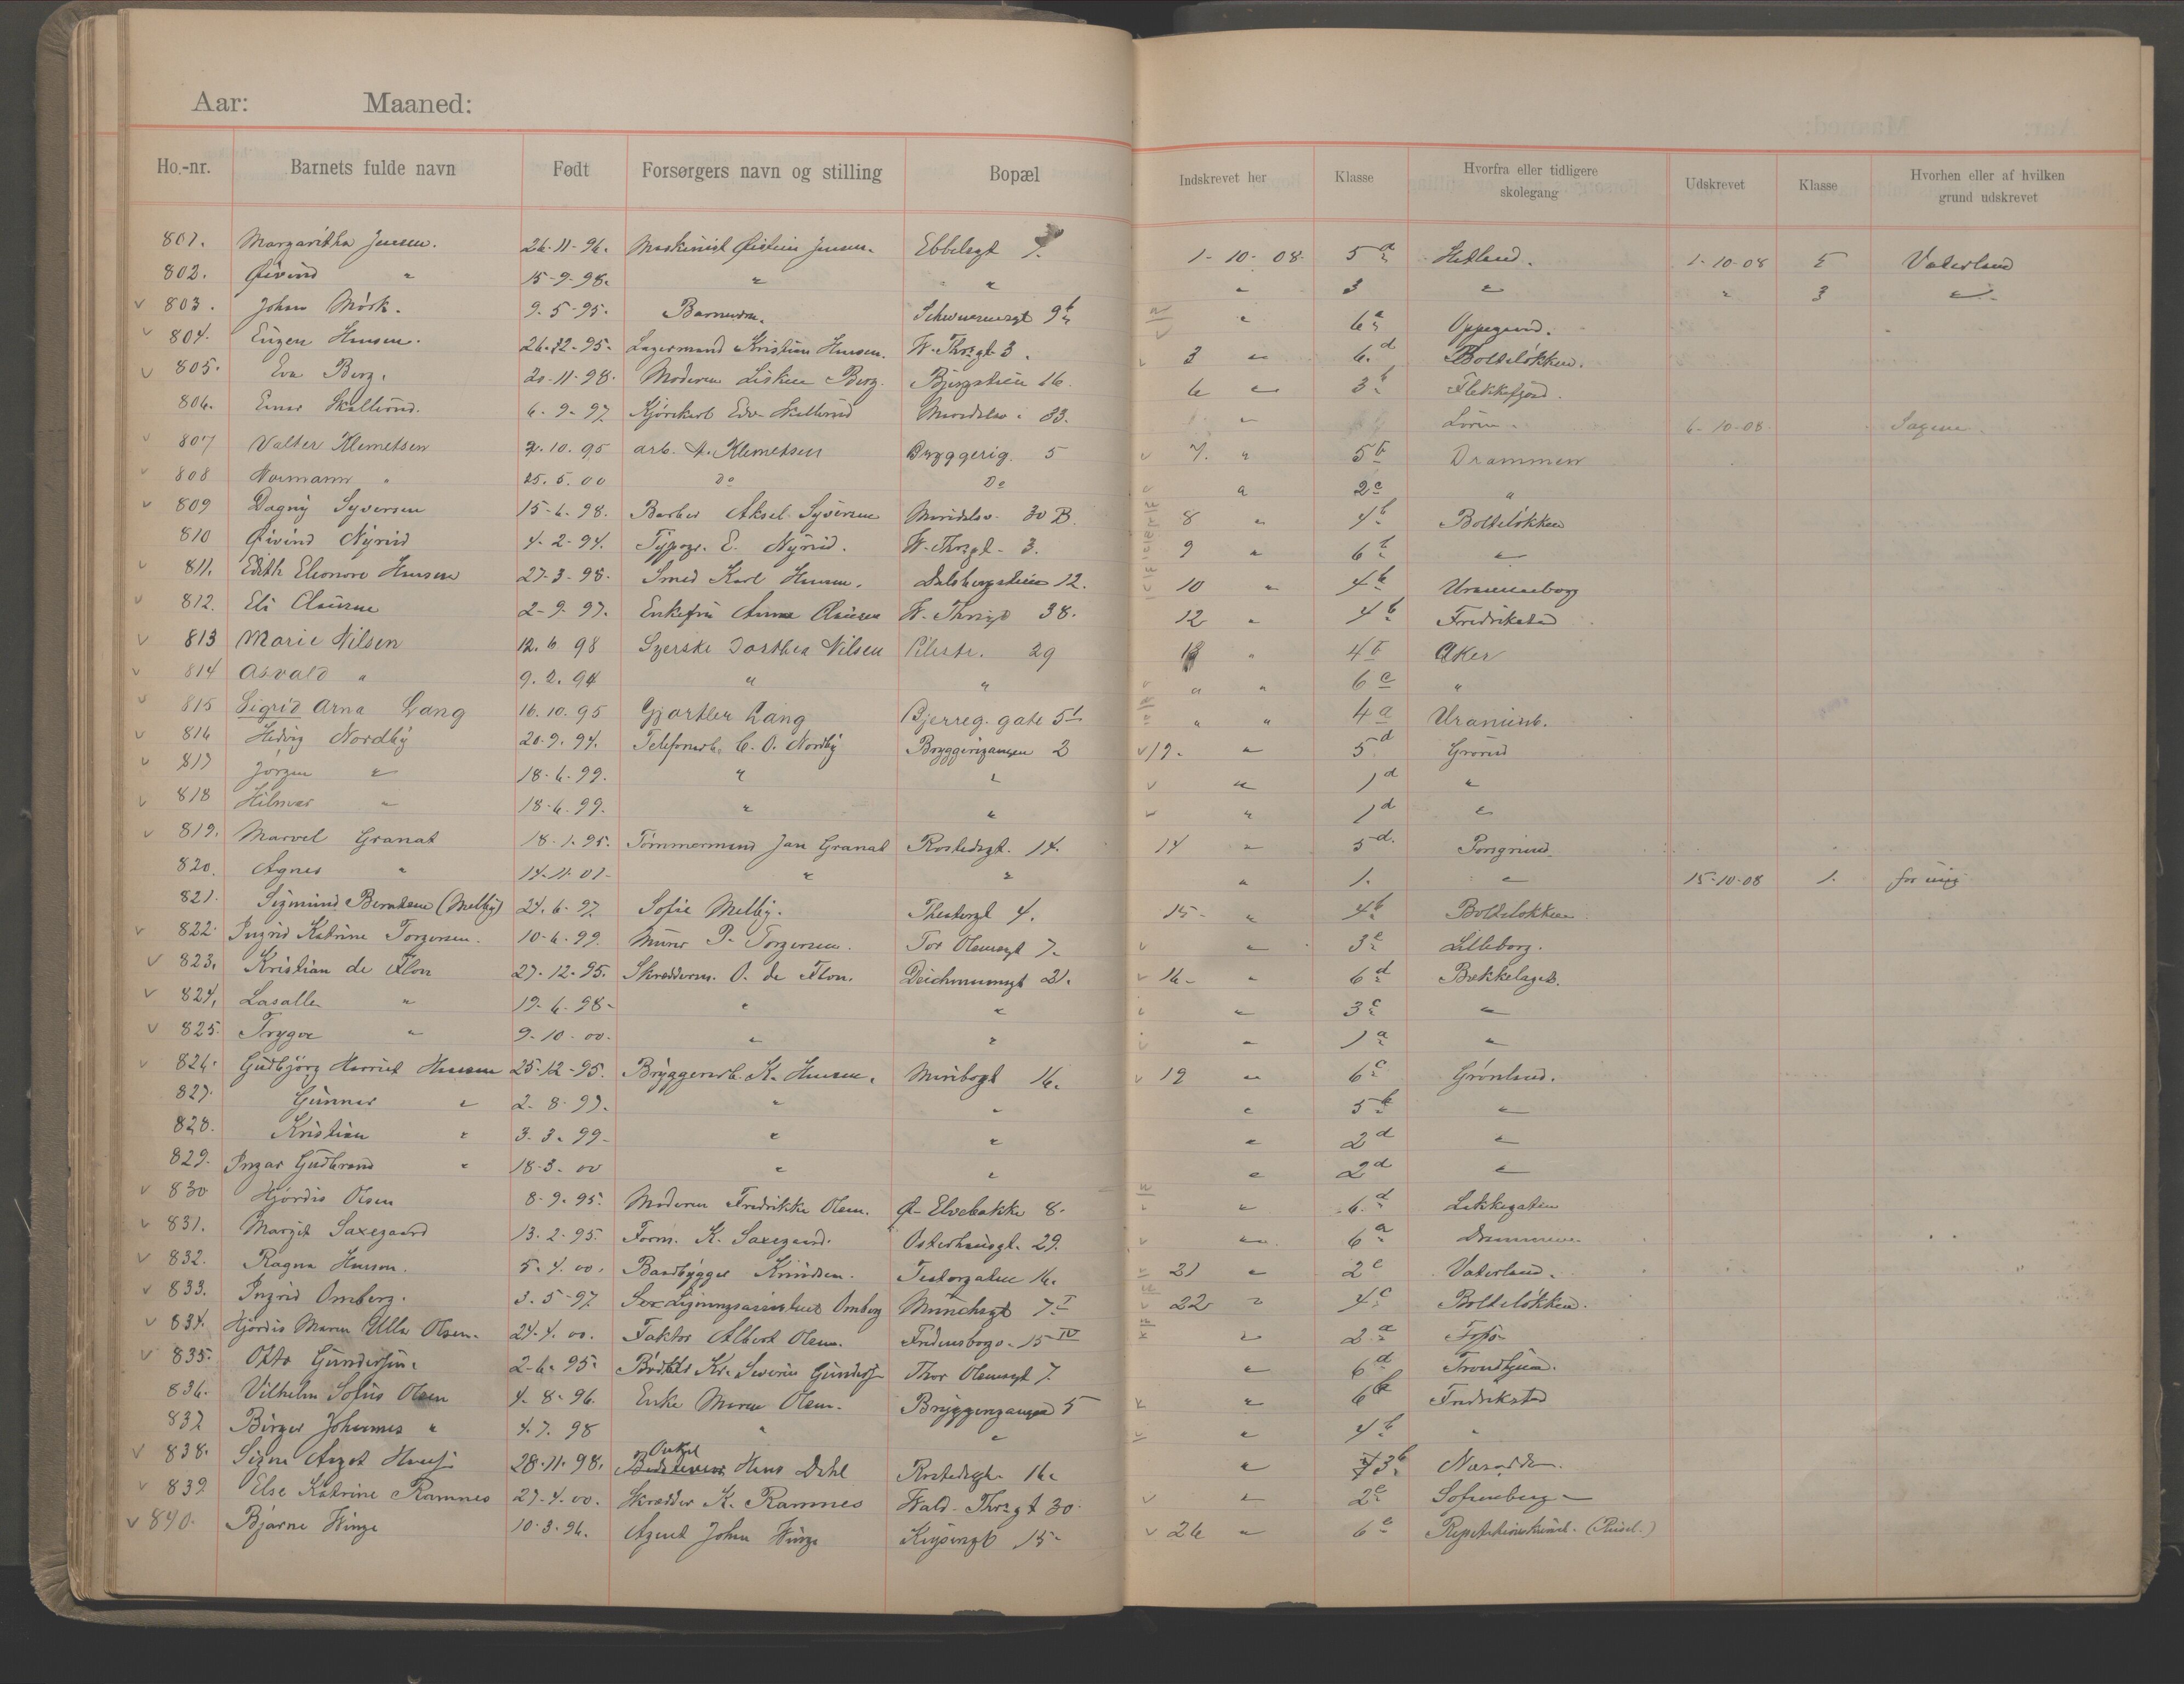 Aar: Maaned:
Ho.-nr. Barnets fulde navn Født Forsørgers navn og stilling Bopæl Indskrevet her Klasse Hvorfra eller tidligere skolegang Udskrevet Klasse Hvorhen eller af hvilken grund udskrevet
801. Margaritha Jensen. 26-11-96. Maskinist Øistein Jensen. Ebbelsgt 7. 1-10-08. 5a Hetland. 1-10-08 5 Vaterland
802. Øivind " 15-9-98. " " " 3 " " 3 "
v 803. Johan Mørk. 9-5-95. Schwensensgt 9b " 6a Oppegaard.
v 804. Eugen Hansen. 26-12-95. Lagermand Kristian Hansen. W. Thrsgt 3. 3 " 6.d Bolteløkken.
v 805. Eva Berg. 20-11-98. Moderen Lisken Berg. Bjergstien 16. 6 " 3b Flekkefjord.
806. Einar Skallerud. 6-9-97 Kjørekarl Edv. Skallerud Maridalsv. 33. " Løren. 6-10-08. Sagene.
v 807 Valter Klemetsen 2.10.95 arb. A. Klemetsen Bryggerig. 5 v 7. " 5b Drammen
v 808 Normann " 25.5.00 Do Do " 2c "
v 809 Dagny Syversen 15-6-98. Barber Aksel Syversen Maridalsv. 30 B. 8 " 4b Bolteløkken
810 Øivind Nyrud 4-2-94. Typogr. E. Nyrud. W. Thrsgt. 3. 9 " 6b "
v 811. Edith Eleonore Hansen 27-3-98. Smed Karl Hansen. Dalsbergstien 12. 10 " 4b Uranienborg
v 812. Eli Clausen 2-9-97. Enkefru Anna Clausen W. Thrsgt 38. 12 " 4b Fredrikstad
v 813 Marie Nilsen 12.6 98 Syerske Dorthea Nilsen Pilestr. 29 13 " 4b Aker
v 814 Asvald " 9.2.94 " " " " 6c "
v 815 Sigrid Arna Lang 16.10.95 Gjørtler Lang Bjerreg. gate 5I " " 4a Uranienb.
v 816 Hedvig Nordby 20-9-94. Telefonarb. C. O. Nordby Bryggerigangen 2 v 12. " 5d Grorud
v 817 Jørgen " 18-6-99. " " v " 1d "
v 818 Hilmar " 18-6-99. " " v " 1d "
v 819. Marvel Granat 18-1-95. Tømmermand Jan Granat Rostedsgt. 14. 14 " 5d. Porsgrund
820. Agnes " 14-11-01- " " " 1. " 15-10-08 1. for ung
821. Sigmund Berntsen (Melby) 24.6-97 Sofie Melby. Theatergt 4. 15- " 4b Bolteløkken
v 822. Ingrid Katrine Torgersen. 10-6-99. Murer P. Torgersen. Tor Olsensgt 7. v " 3e Lilleborg.
v 823. Kristian de Flon 27-12-95. Skrædderm. O. de Flon. Deichmansgt 21. v 16- " 6d Bekkelaget.
v 824. Lasalle " 19-6-98- " " " 3c "
v 825. Trygve " 9-10-00. " " " 1a "
v 826. Gudbjørg Harriet Hansen 25-12-95. Bryggeriarb. K. Hansen. Maribogt 16. v 19 " 6c Grønland.
827. Gunnar " 2-8-97. " " " 5b "
828. Kristian " 3-3-99- " " " 2d "
829. Ingar Gudbrand " 18-3-00 " " " 2d "
v 830 Hjørdis Olsen 8-9-95. Moderen Fredrikke Olsen. Ø. Elvebakke 8. " 6.d Lakkegaten
v 831. Margit Saxegaard 13-2-95. Form. K. Saxegaard. Osterhausgt. 29. v " 6a Drammen
v 832. Ragna Hansen. 5-4-00. Baadbygger Knudsen. Teatergaten 16. 21 " 2c Vaterland.
v 833. Ingrid Omberg. 3-5-97 Omberg Munchsgt 7I 22 " 4c Bolteløkken.
v 834. Hjørdis Maren Ulla Olsen. 24.4.00. Faktor Albert Olsen. Fredensborgv. 15 IV " 2a
v 835. Otto Gundersen. 2-6-95. Bødker Kr. Severin Gunders. Thor Olsensgt 7. " 6d Trondhjem.
836. Vilhelm Sofus Olsen 4-8-96. Enke Maren Olsen. Bryggerigangen 5 " 6b Fredrikstad
837 Birger Johannes " 4.7.98 " " " 4b "
v 838. Signe Aagot Hansen 28-11-98. Onkel Hans Dahl Rostedsgt. 16. " 3b
v 839 Else Katrine Ramnes 27-4-00. Skrædder K. Ramnes Wald. Thrsgt 30. v " 2c Sofienberg
v 840. Bjarne Winge 10-3-96. Agent Johan Winge Keysersgt 15. v 26 " 6c